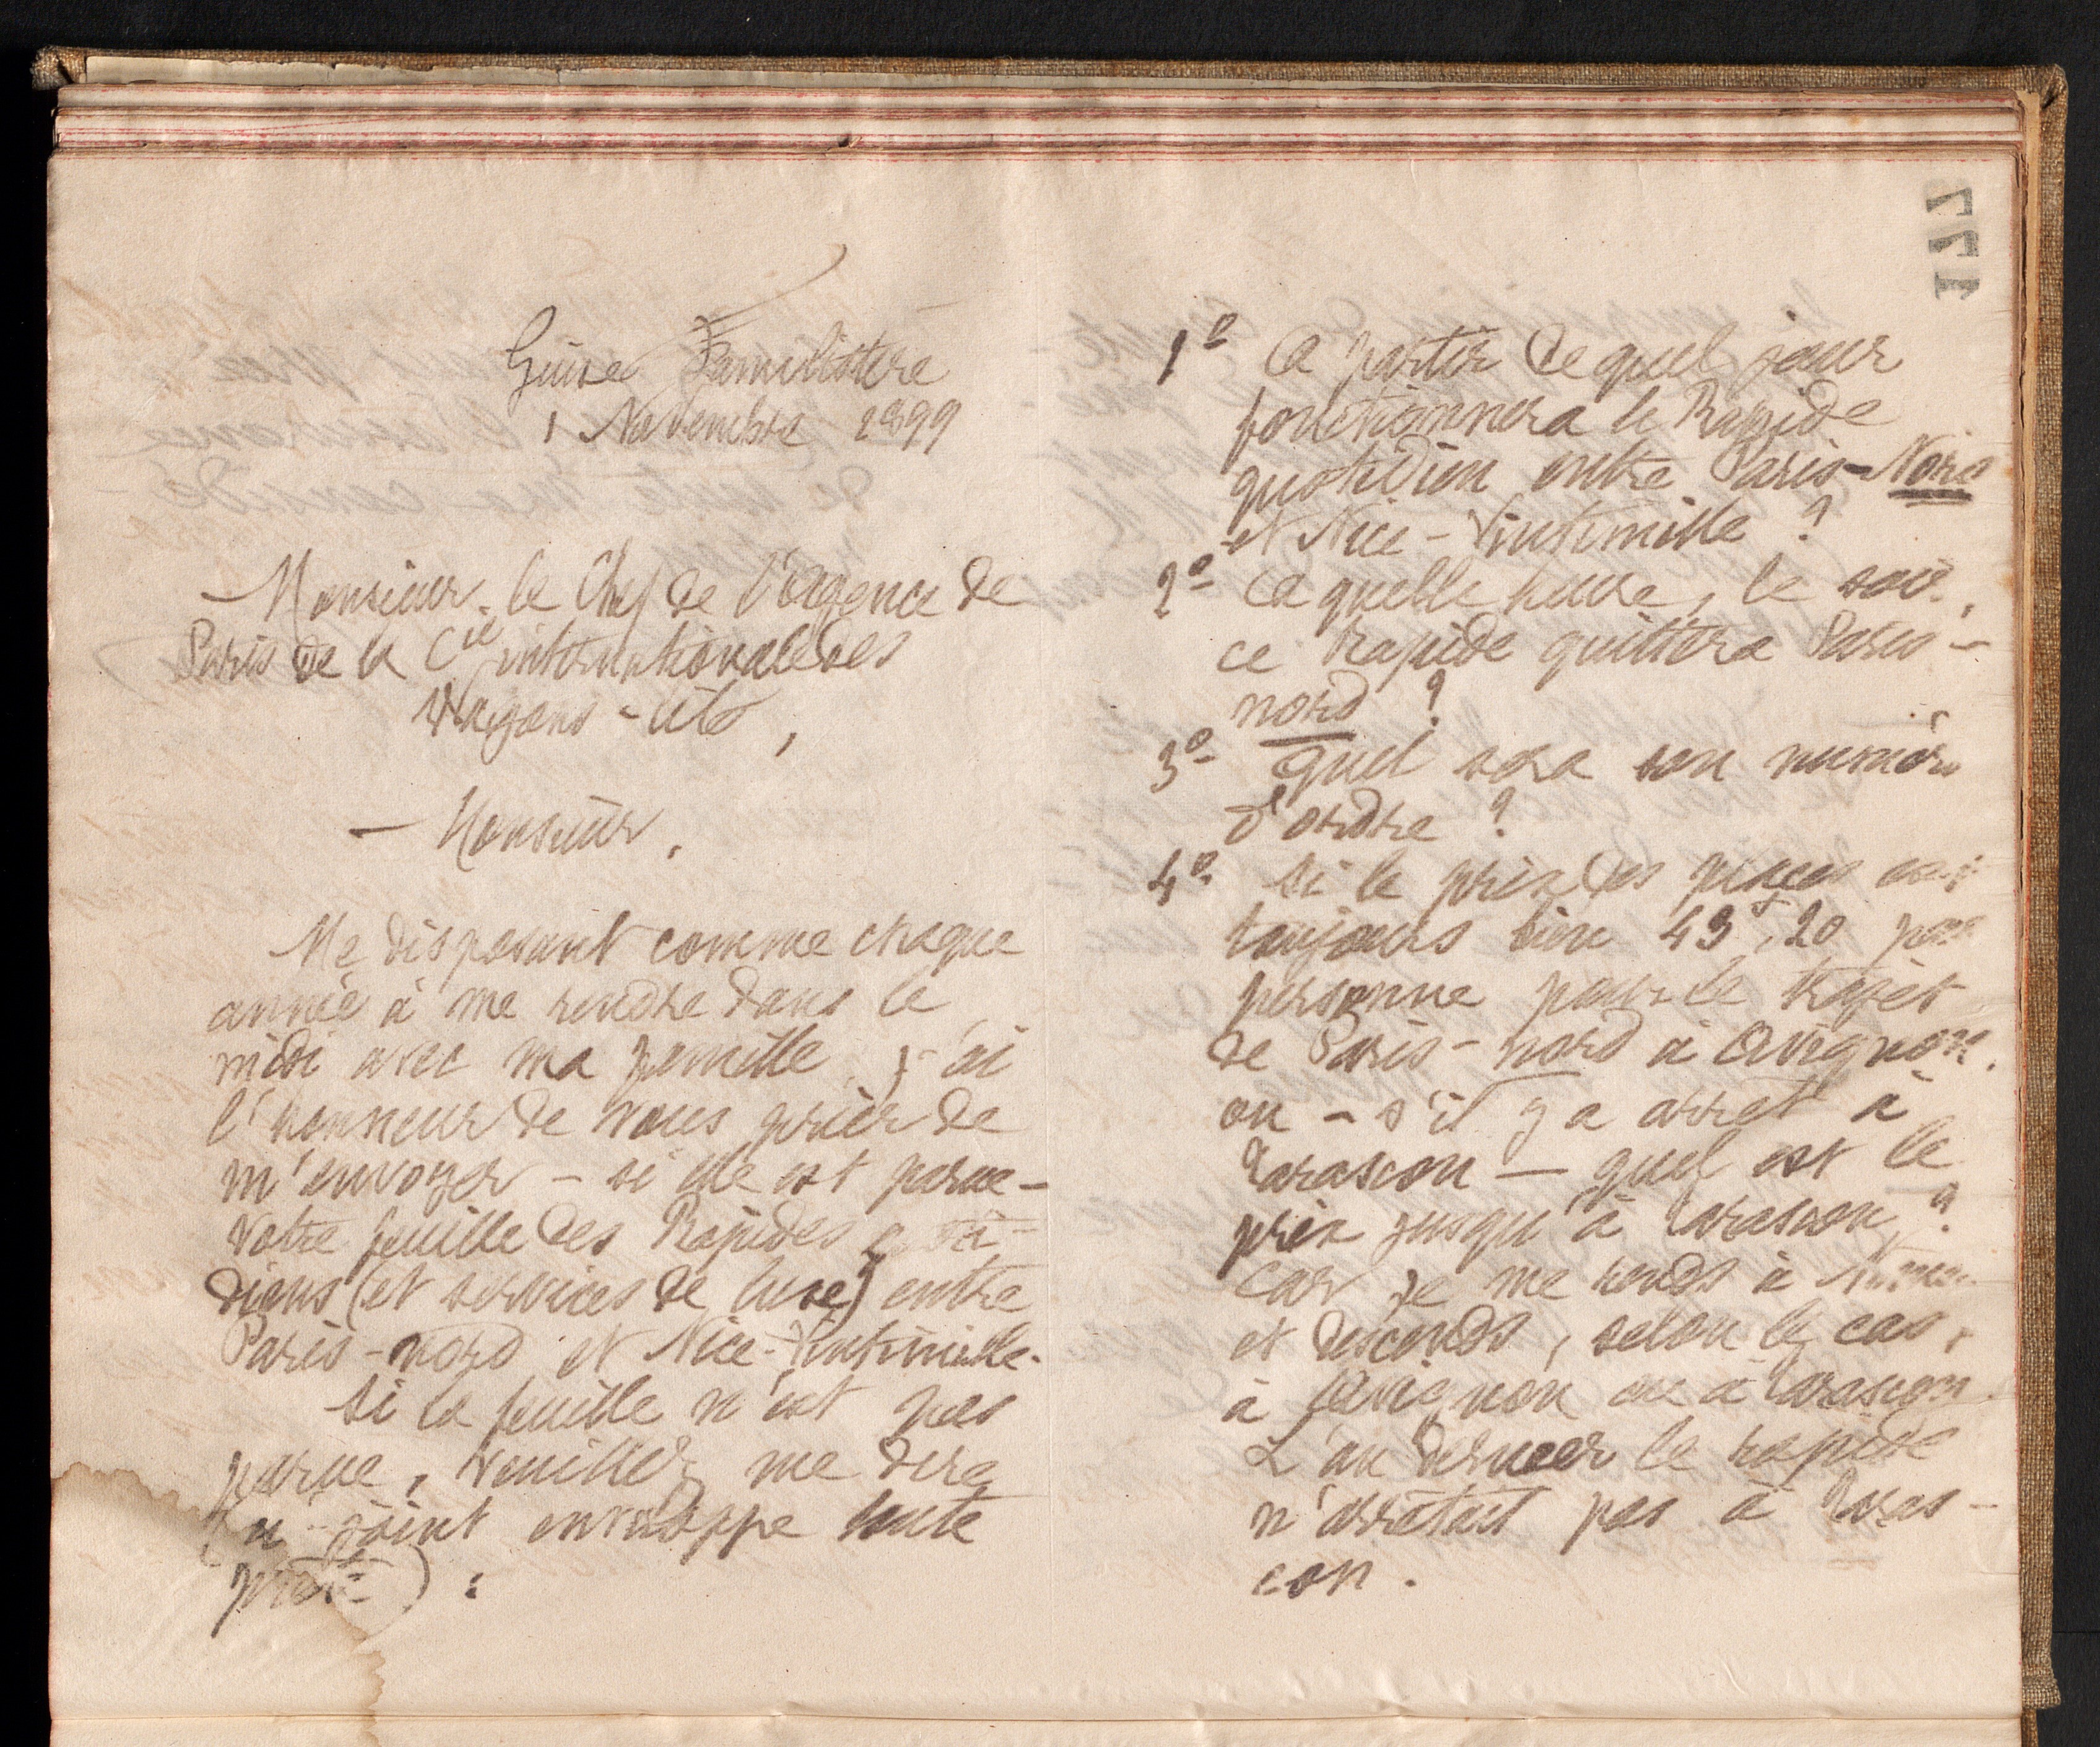 Guise Familistère
1 Novembre 1899
Monsieur le Chef de l'Agence de
Paris de la Cie internationale des
Wagons-lits,
Monsieur,
Me disposant comme chaque
année à me rendre dans le
midi avec ma famille, j'ai
l'honneur de vous prier de
m'envoyer - si elle est parue -
votre feuille des Rapides quoti-
diens (et services de luxe) entre
Paris-nord et Nice-Vintimille.
Si la feuille n'est pas
parue, veuillez me dire
(ci-joint enveloppe toute
prête) :
177
1º A partir de quel jour
fonctionnera le Rapide
quotidien entre Paris-Nord
et Nice-Vintimille ?
2º A quelle heure, le soir,
ce rapide quittera Paris-
nord ?
3º quel sera son numéro
d'ordre ?
4º Si le prix des places est
toujours bien 43f,20 par
personne pour le trajet
de Paris-nord à Avignon.
ou - s'il y a arrêt à
Tarascon - quel est le
prix jusqu'à Tarascon ?
Car je me rends à Nimes
et descends, selon le cas,
à Avignon ou à Tarascon.
L'an dernier le rapide
n'arrêtait pas à Taras-
con.